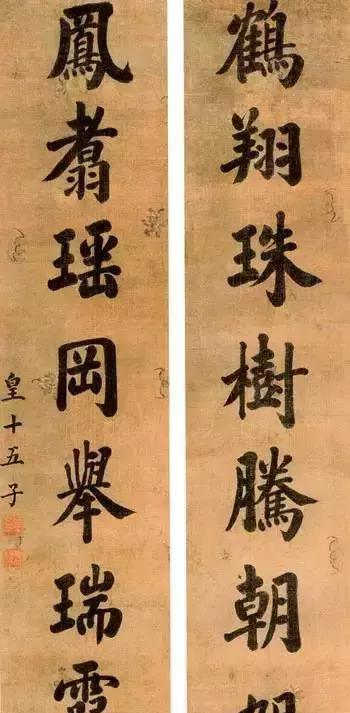 鶴翔珠樹騰朝
鳳翥瑶岡舉瑞
皇十五子